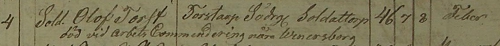 4 Sold. Olof Torst Torstarp Södra Soldattorp 46 7 8 Feber
död vid arbets Commendering nära Wenersborg